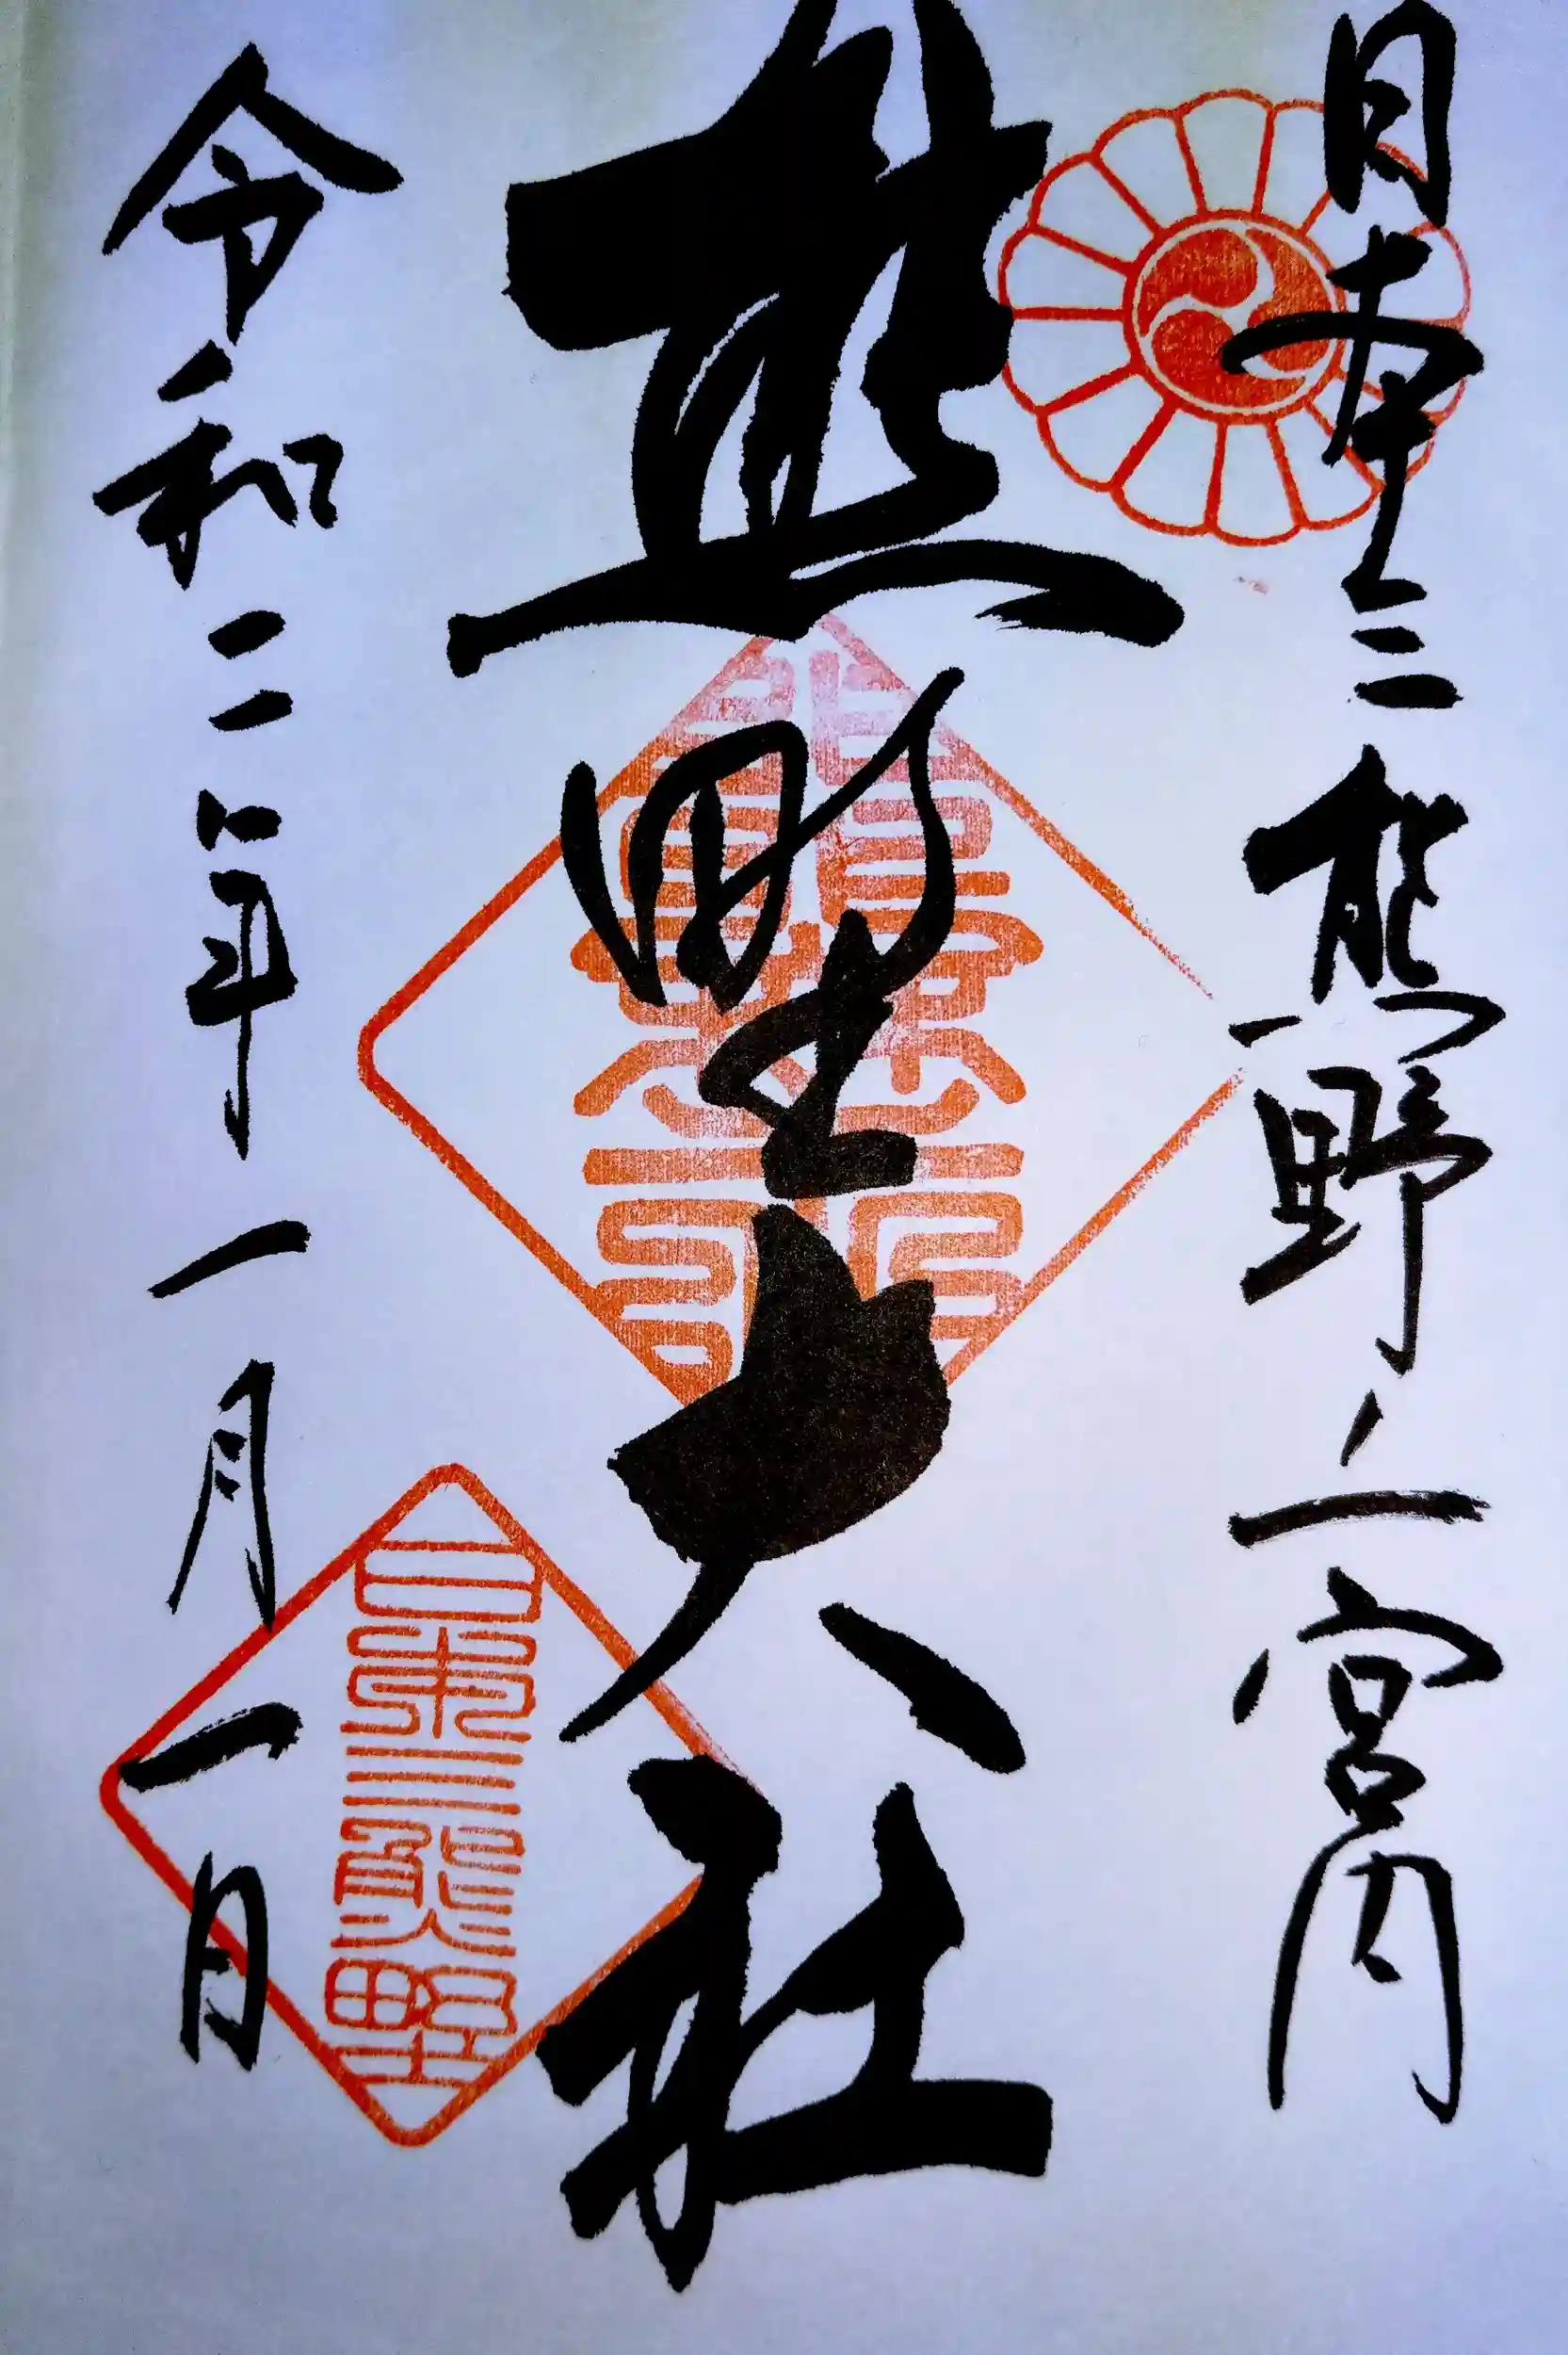 日本三熊野ノ一宮内
熊野大社
令和二年一月一日
日本三熊野